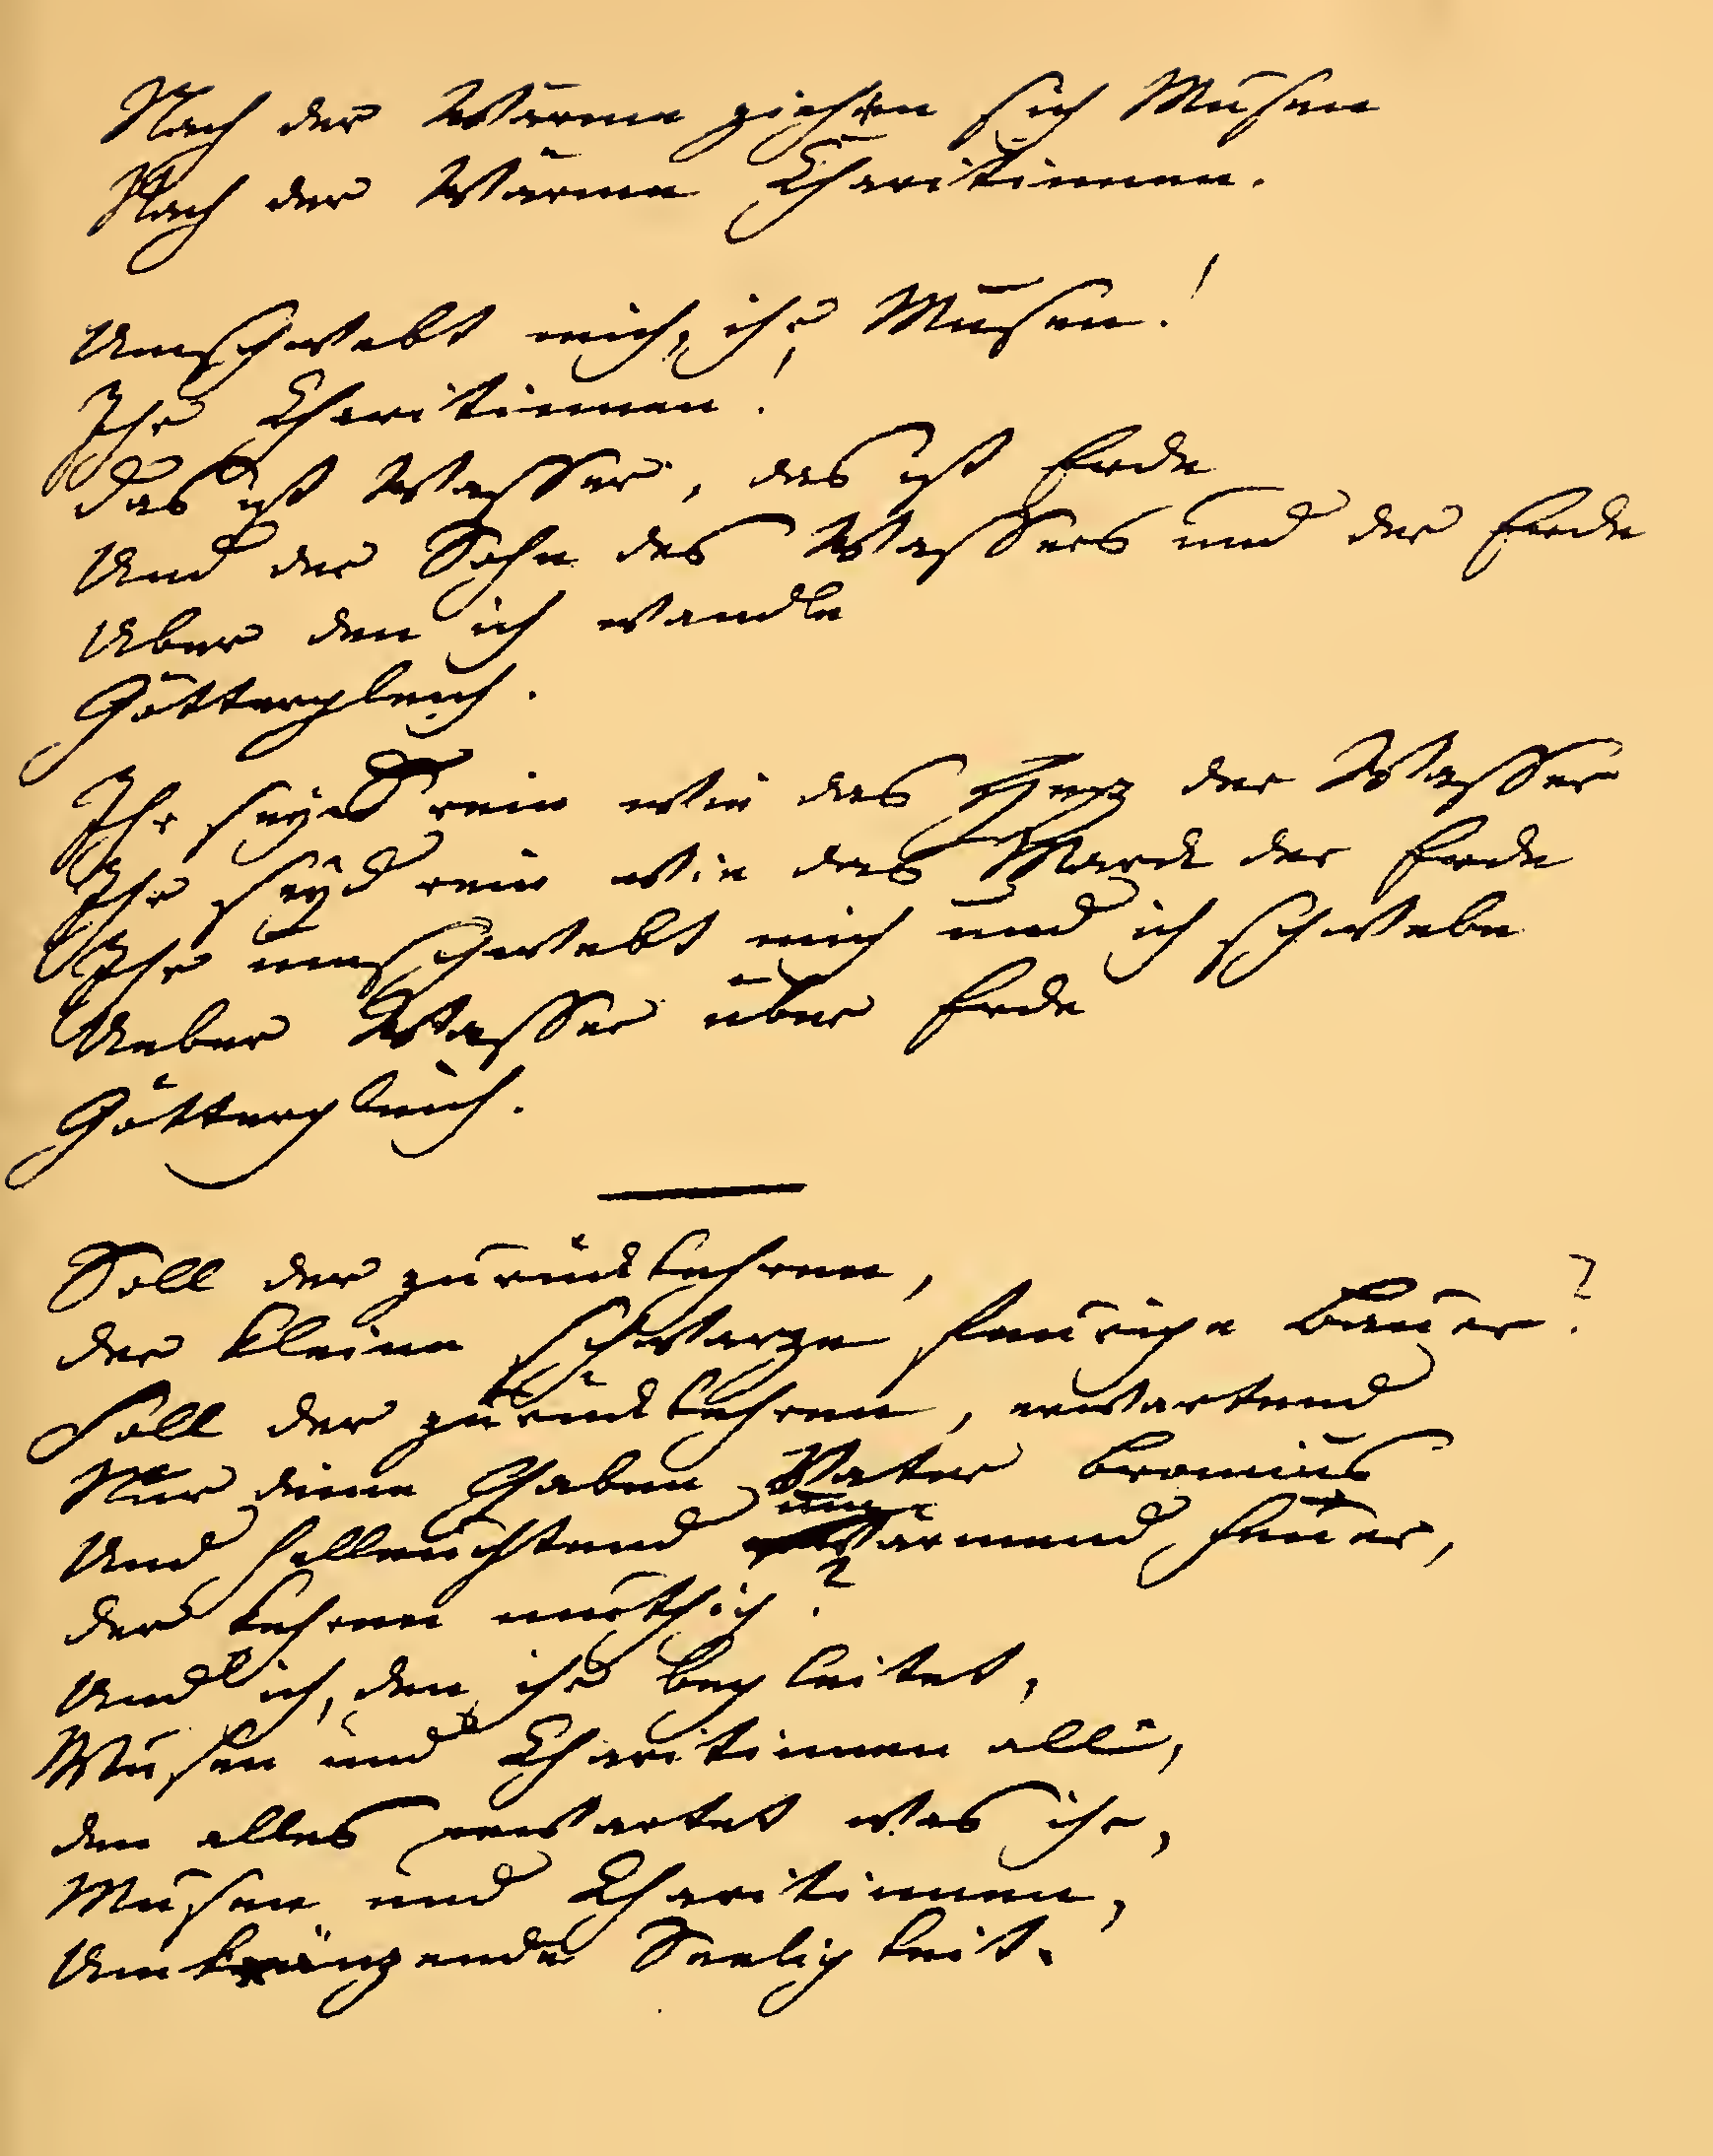 Nach der Wärme ziehen sich Musen
Nach der Wärme Charitinnen.
Umschwebt mich, ihr Musen!
Ihr Charitinnen!
Das ist Wasser, das ist Erde
Und der Sohn des Wassers und der Erde
Über den ich wandle
Göttergleich.
Ihr seyd rein wie das Herz der Wasser
Ihr seyd rein wie das Marck der Erde
Ihr umschwebt mich und ich schwebe
Ueber Wasser über Erde
Göttergleich.
Soll der zurückkehren,
der kleine schwarze feurige Bauer?
Soll der zurückkehren, erwartend
Nur deine Gaben Vater Bromius
Und hellleuchtend umwärmend Feuer,
der kehren muthig?
Und ich, den ihr begleitet,
Musen und Charitinnen alle,
den alles erwartet was ihr,
Musen und Charitinnen,
Umkränzende Seeligkeit.